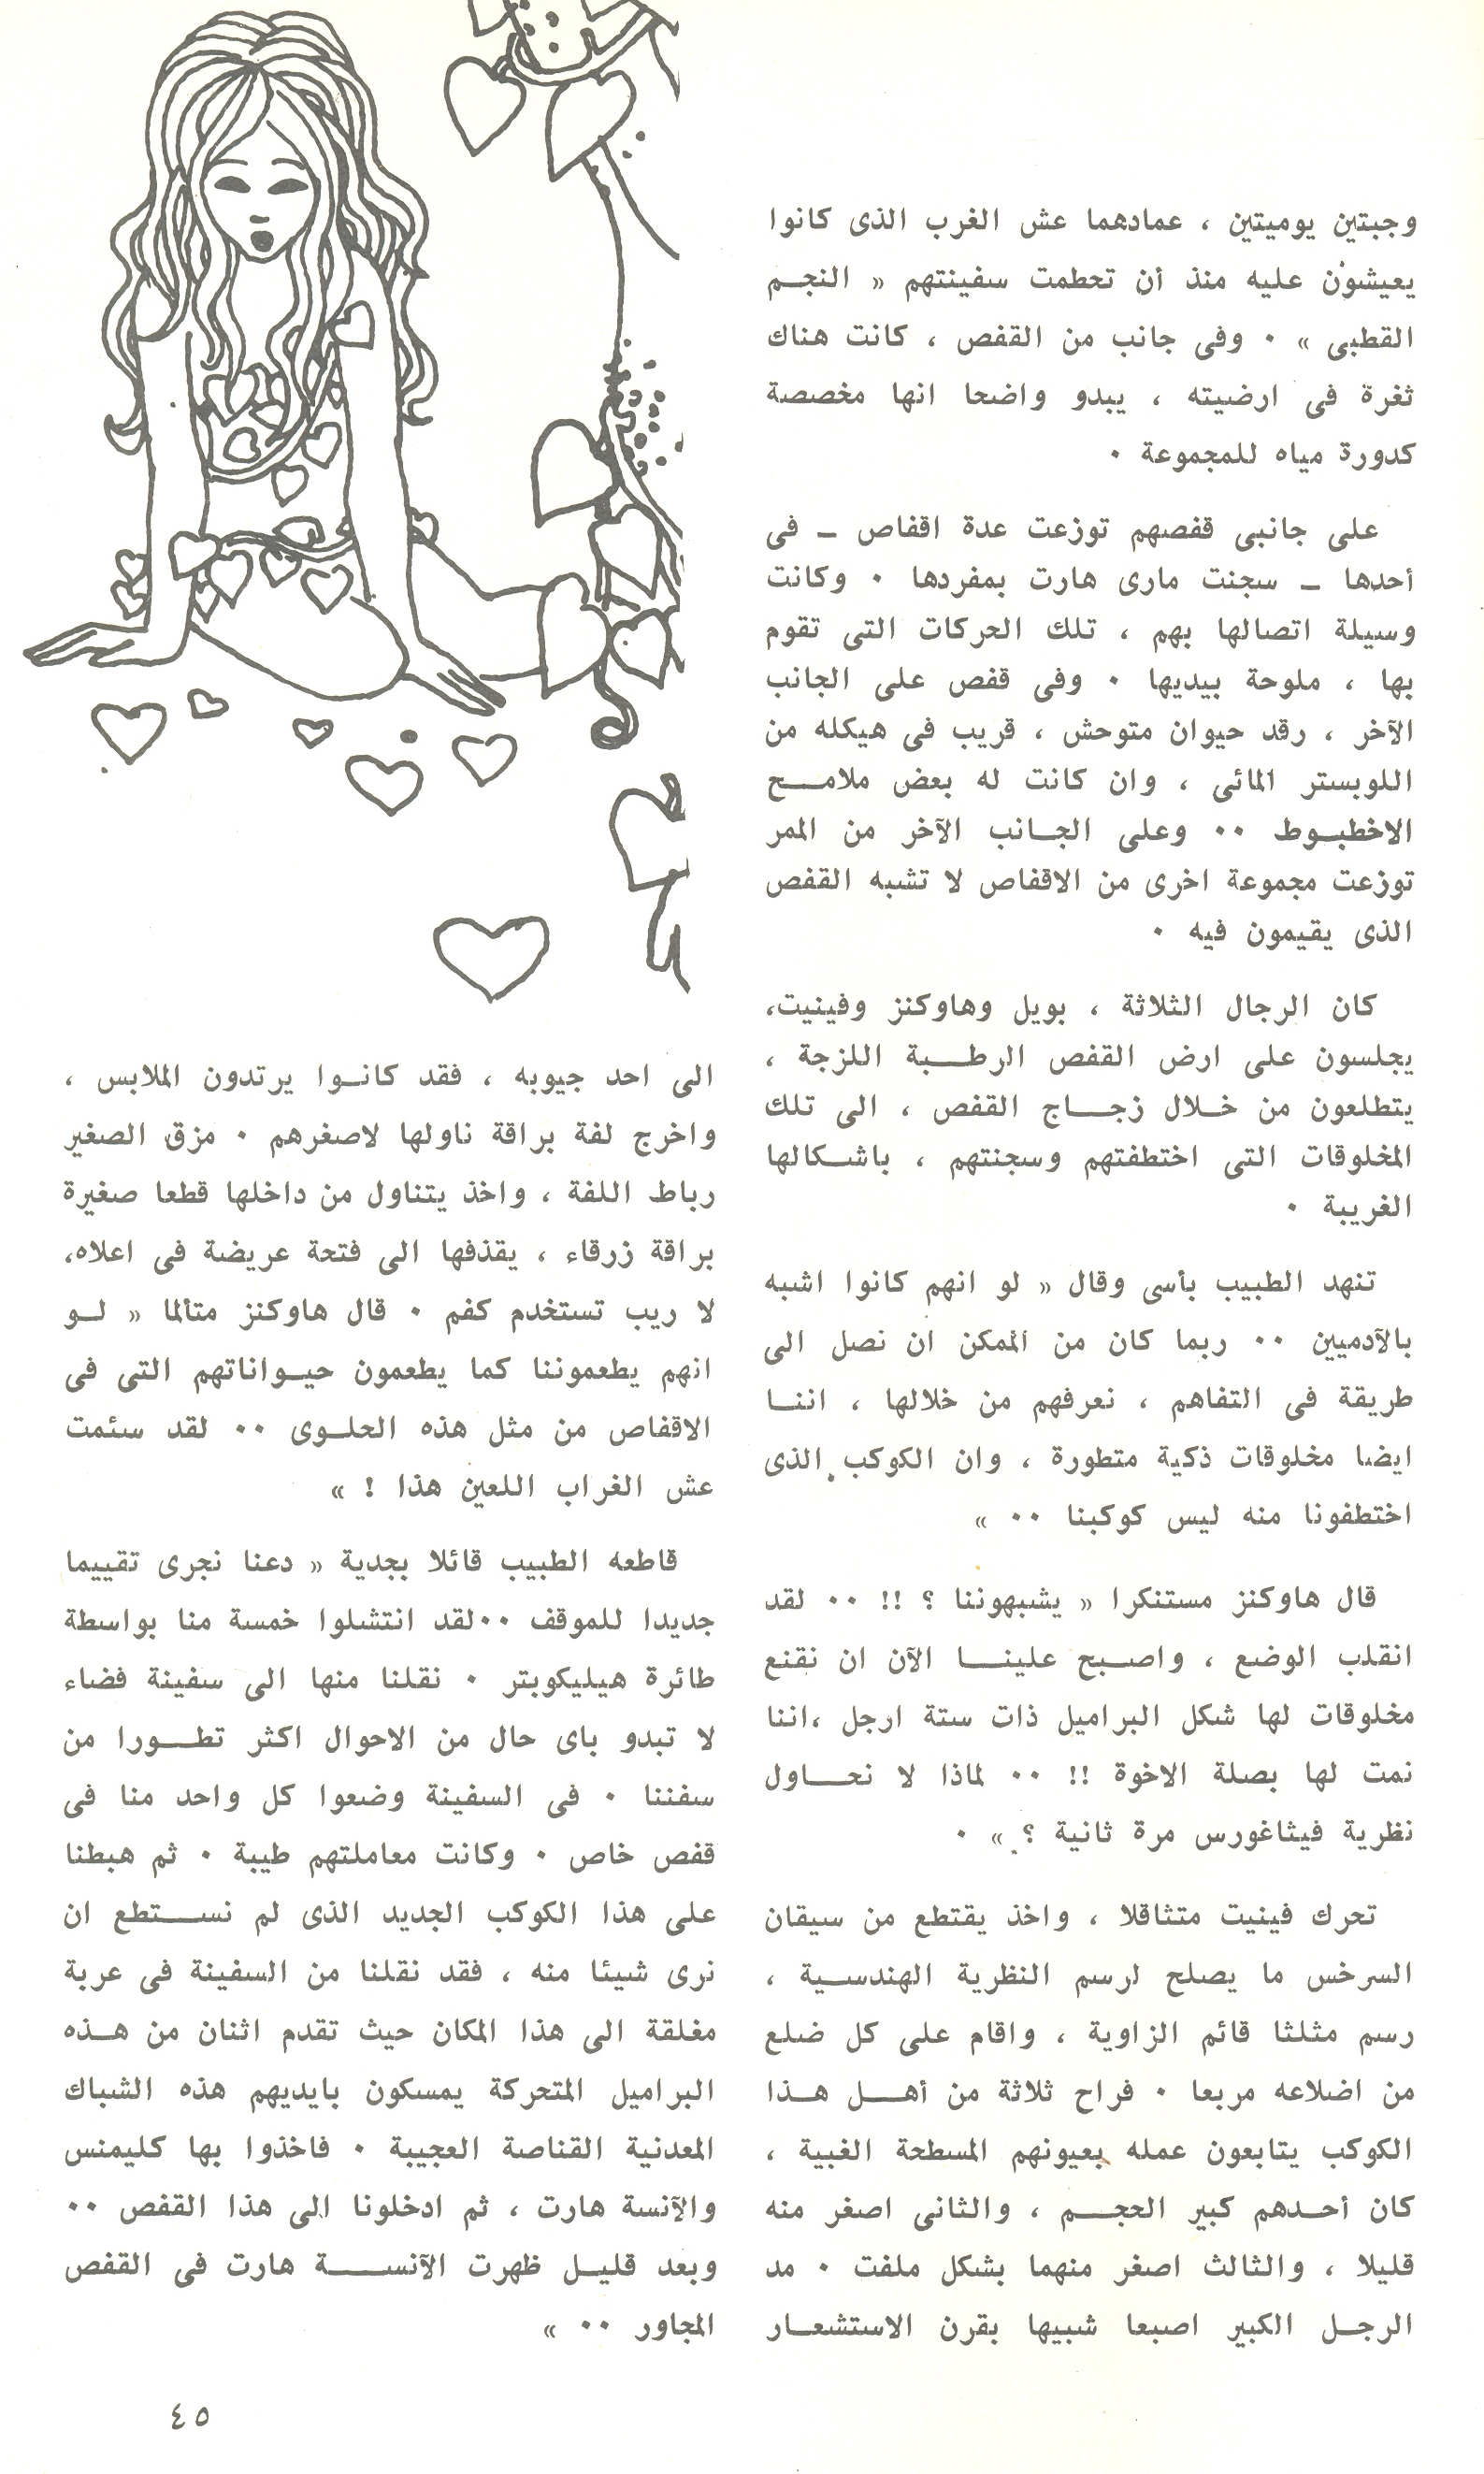 وجبتين يوميتين ، عمادهما عش الغرب الذى كانوا
يعيشون عليه منذ أن تحطمت سفينتهم « النجـم
القطبى » ٠ وفى جانب من القفص ، كانت هناك
ثغرة فى ارضيته ، يبدو واضحا انها مخصصة
كدورة مياه للمجموعة ٠
على جانبى قفصهم توزعت عدة اقفاص ــ فى
أحدها ــ سجنت مارى هارت بمفردها ٠ وكانت
وسيلة اتصالها بهم ، تلك الحركات التى تقوم
بها ، ملوحة بيديها ٠ وفى قفص على الجانب
الآخر ، رقد حيوان متوحش ، قريب فى هيكله من
اللوبستر المائى ، وان كانت له بعض ملامـــح
الاخطبـوط ٠٠ وعلى الجـانب الآخر من الممر
توزعت مجموعة اخرى من الاقفاص لا تشبه القفص
الذى يقيمون فيه ٠
كان الرجال الثلاثة ، بويل وهاوكنز وفينيت،
يجلسون على ارض القفص الرطــبة اللزجة ،
يتطلعون من خــلال زجــاج القفص ، الى تلك
المخلوقات التى اختطفتهم وسجنتهم ، باشـكالها
الغريبة ٠
تنهد الطبيب بأسى وقال « لو انهم كانوا اشبه
بالآدميين ٠٠ ربما كان من الممكن ان نصل الى
طريقة فى التفاهم ، نعرفهم من خلالها ، اننــا
ايضا مخلوقات ذكية متطورة ، وان الكوكب الذى
اختطفونا منه ليس كوكبنا ٠٠ »
قال هاوكنز مستنكرا « يشبهوننا ؟ !! ٠٠ لقد
انقلب الوضع ، واصـبح علينــا الآن ان نقنع
مخلوقات لها شكل البراميل ذات ستة ارجل ،اننا
نمت لها بصلة الاخوة !! ٠٠ لماذا لا نحــاول
نظرية فيثاغورس مرة ثانية ؟ » ٠
تحرك فينيت متثاقلا ، واخذ يقتطع من سيقان
السرخس ما يصلح لرسم النظرية الهندسـية ،
رسم مثلثا قائم الزاوية ، واقام على كل ضلع
من اضلاعه مربعا ٠ فراح ثلاثة من أهـل هـذا
الكوكب يتابعون عمله بعيونهم المسطحة الغبية ،
كان أحـدهم كبير الحجــم ، والثانى اصغر منه
قليلا ، والثالث اصغر منهما بشكل ملفت ٠ مد
الرجـل الكبير اصبعا شبيها بقرن الاستشعـار
الى احد جيوبه ، فقد كانـوا يرتدون الملابس ،
واخرج لفة براقة ناولها لاصغرهم ٠ مزق الصغير
رباط اللفة ، واخذ يتناول من داخلها قطعا صغيرة
براقة زرقاء ، يقذفها الى فتحة عريضة فى اعلاه،
لا ريب تستخدم كفم ٠ قال هاوكنز متألما « لـو
انهم يطعموننا كما يطعمون حيـواناتهم التى فى
الاقفاص من مثل هذه الحلـوى ٠٠ لقد سئمت
عش الغراب اللعين هذا ! »
قاطعه الطبيب قائلا بجدية « دعنا نجرى تقييما
جديدا للموقف ٠٠لقد انتشلوا خمسة منا بواسطة
طائرة هيليكوبتر ٠ نقلنا منها الى سفينة فضاء
لا تبدو باى حال من الاحوال اكثر تطــورا من
سفننا ٠ فى السفينة وضعوا كل واحد منا فى
قفص خاص ٠ وكانت معاملتهم طيبة ٠ ثم هبطنا
على هذا الكوكب الجديد الذى لم نســتطع ان
نرى شيئا منه ، فقد نقلنا من السفينة فى عربة
مغلقة الى هذا المكان حيث تقدم اثنان من هـذه
البراميل المتحركة يمسكون بايديهم هذه الشباك
المعدنية القناصة العجيبة ٠ فاخذوا بها كليمنس
والآنسة هارت ، ثم ادخلونا الى هذا القفص ٠٠
وبعد قليـل ظهرت الآنســـة هارت فى القفص
المجاور ٠٠ »
٤٥